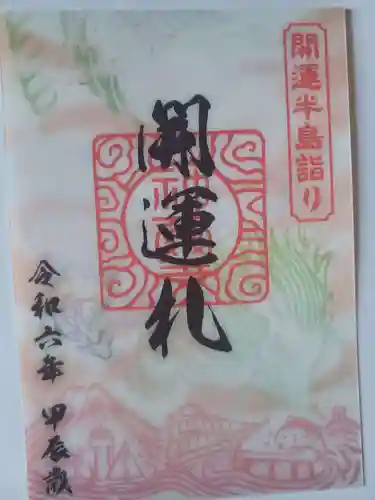 開運半島詣り
開運札
令和六年 甲辰歳